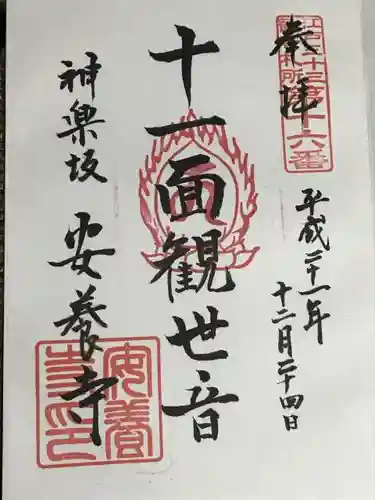 奉拝
江戸三十三番札所第十六番
平成二十一年
十二月二十四日
十一面観世音
神楽坂
安養寺
安養寺印